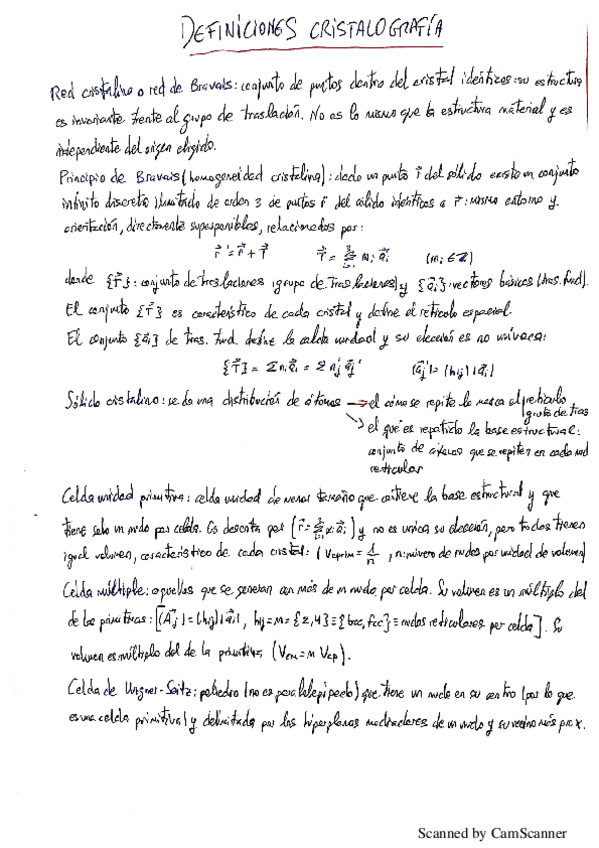 DEFINICIONES CRISTALOGRAFÍA
Red cristalina o red de Bravais: conjunto de puntos dentro del cristal idénticos: su estructura
es invariante frente al grupo de traslación. No es lo mismo que la estructura material y es
independiente del origen elegido.
Principio de Bravais (homogeneidad cristalina): dado un punto r⃗ del sólido existe un conjunto
infinito discreto ilimitado de orden 3 de puntos r⃗' del sólido idénticos a r⃗: mismo entorno y
orientación, directamente superponibles, relacionados por:
r⃗' = r⃗ + T⃗ T⃗ = Σ nᵢ a⃗ᵢ (nᵢ ∈ Z)
donde {T⃗}: conjunto de traslaciones (grupo de traslaciones) y {a⃗ᵢ}: vectores básicos (tras. fund).
El conjunto {T⃗} es característico de cada cristal y define el retículo espacial.
El conjunto {a⃗ᵢ} de tras. fund. define la celda unidad y su elección es no unívoca:
{T⃗} = Σ nᵢ a⃗ᵢ = Σ nⱼ' a⃗ⱼ' (a⃗ⱼ') = (hij) (a⃗ᵢ)
Sólido cristalino: se da una distribución de átomos → el cómo se repite lo marca el retículo
grupo de tras
↘ el qué es repetido la base estructural:
conjunto de átomos que se repiten en cada nudo
reticular
Celda unidad primitiva: celda unidad de menor tamaño que contiene la base estructural y que
tiene solo un nudo por celda. Es descrita por (r⃗ = Σ xᵢ a⃗ᵢ) y no es única su elección, pero todos tienen
igual volumen, característico de cada cristal: (Vcprim = 1/n, n: número de nudos por unidad de volumen)
Celda múltiple: aquellas que se generan con más de un nudo por celda. Su volumen es un múltiplo del
de las primitivas: [(A⃗ⱼ) = (hij) (a⃗ᵢ), hij = m = {2,4} ≡ {bcc, fcc} ≡ nudos reticulares por celda]. Su
volumen es múltiplo del de la primitiva (Vcm = m Vcp).
Celda de Wigner-Seitz: poliedro (no es paralelepípedo) que tiene un nudo en su centro (por lo que
es una celda primitiva) y delimitada por los hiperplanos mediadores de un nudo y su vecino más próx.
Scanned by CamScanner